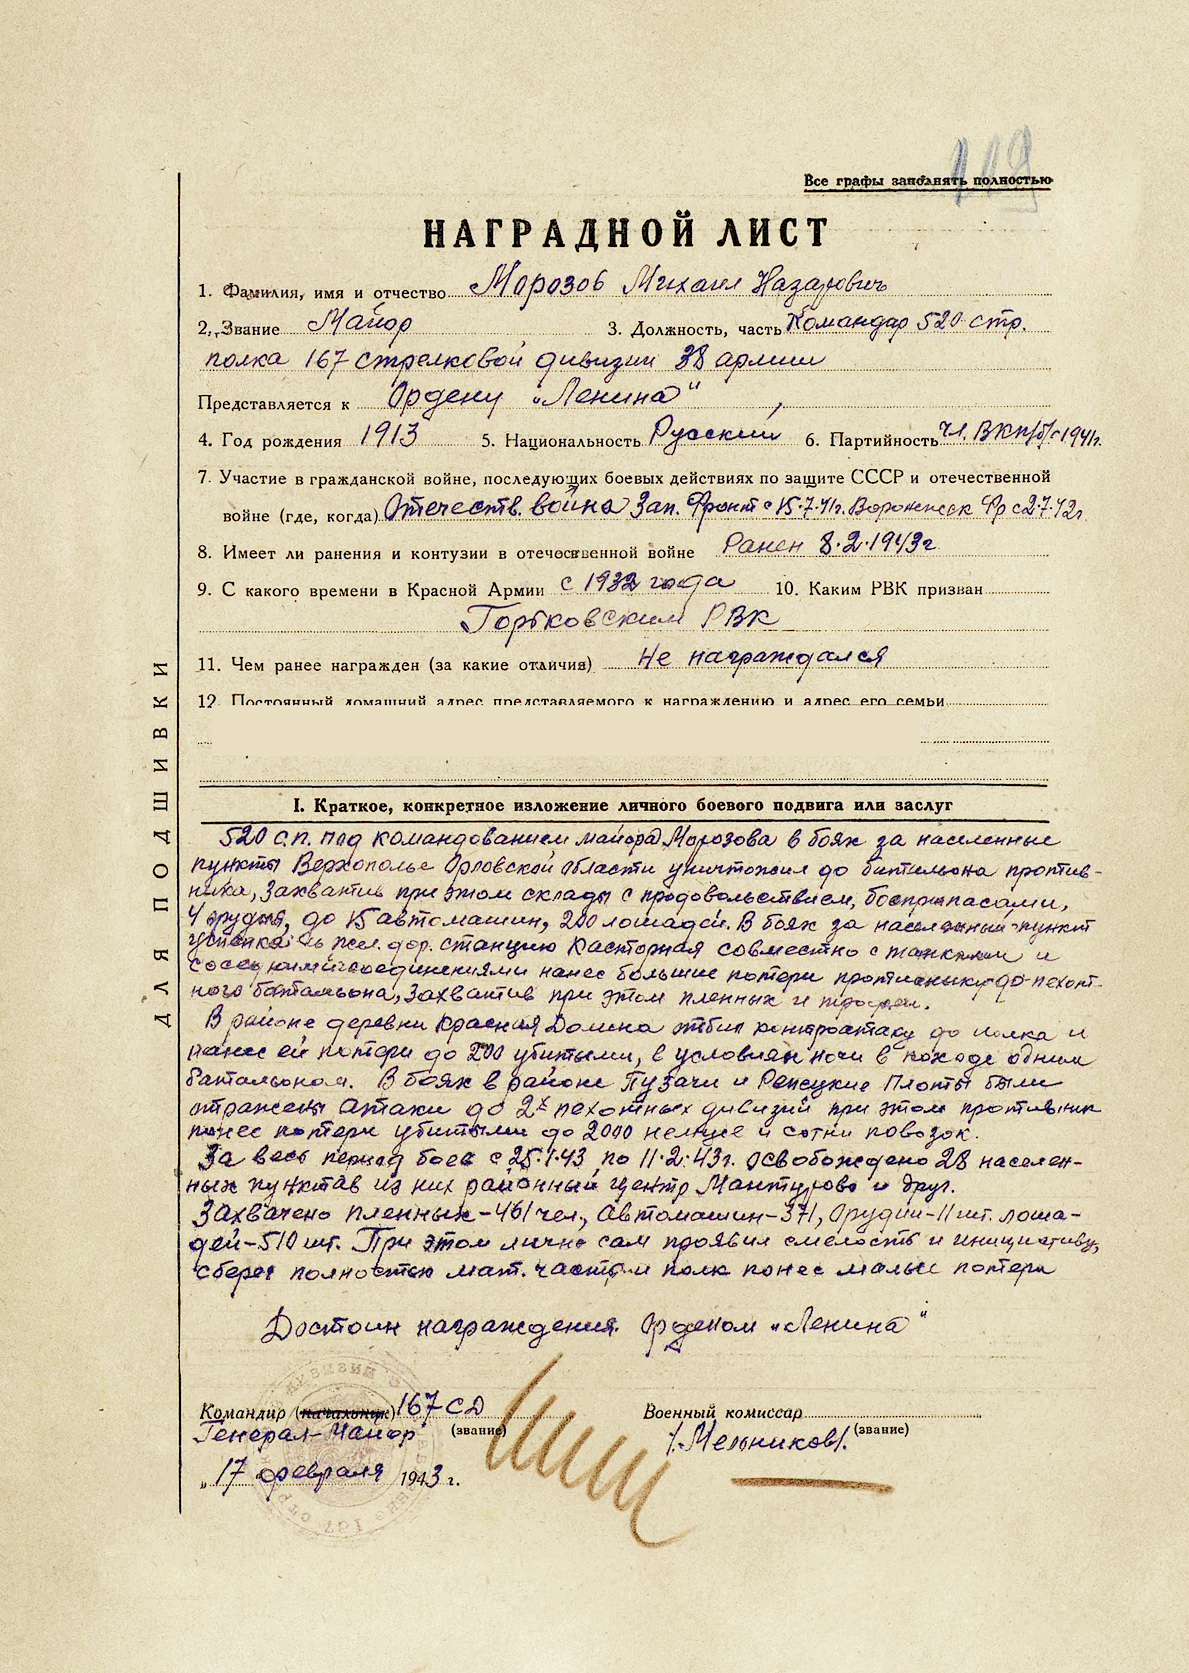 119
Все графы заполнять полностью
НАГРАДНОЙ ЛИСТ
1. Фамилия, имя и отчество Морозов Михаил Назарович
2. Звание Майор 3. Должность, часть Командар 520 стр.
полка 167 стрелковой дивизии 38 армии
Представляется к Ордену „Ленина"
4. Год рождения 1913 5. Национальность Русский 6. Партийность чл. ВКП/б/ с 1941г.
7. Участие в гражданской войне, последующих боевых действиях по защите СССР и отечественной
войне (где, когда) Отечеств. война Зап. Фронт с 15.7.41г. Воронежск Фр с 2.7.42г.
8. Имеет ли ранения и контузии в отечественной войне Ранен 8.2.1943г
9. С какого времени в Красной Армии с 1932 года 10. Каким РВК призван
Горьковским РВК
11. Чем ранее награжден (за какие отличия) Не награждался
12. Постоянный домашний адрес представляемого к награждению и адрес его семьи
ДЛЯ ПОДШИВКИ
I. Краткое, конкретное изложение личного боевого подвига или заслуг
520 с.п. под командованием майора Морозова в боях за населенные
пункты Верхополье Орловской области уничтожил до батальона против-
ника, захватив при этом склады с продовольствием, боеприпасами,
4 орудия, до 15 автомашин, 200 лошадей. В боях за населенный пункт
жел. дор. станцию Касторная совместно с танками и
соседними соединениями нанес большие потери противнику до пехот-
ного батальона, захватив при этом пленных и трофеи.
В районе деревни Красная Долина отбил контратаку до полка и
нанес ей потери до 200 убитыми, в условиях ночи в походе одним
батальоном. В боях в районе Пузачи и Репецкие Плоты были
отражены атаки до 2х пехотных дивизий при этом противник
понес потери убитыми до 2000 немцев и сотни повозок.
За весь период боев с 25.1.43 по 11.2.43г. освобождено 28 населен-
ных пунктов из них районный центр Мантурово и друг.
Захвачено пленных-461 чел, автомашин-371, Орудий-11 шт. лоша-
дей-510 шт. При этом лично сам проявил смелость и инициативу,
сберег полностью мат. часть и полк понес малые потери
Достоин награждения Орденом „Ленина"
Командир (начальник) 167 СД
Генерал-Майор (звание)
„17 февраля 1943 г.
Военный комиссар
/.Мельников/. (звание)